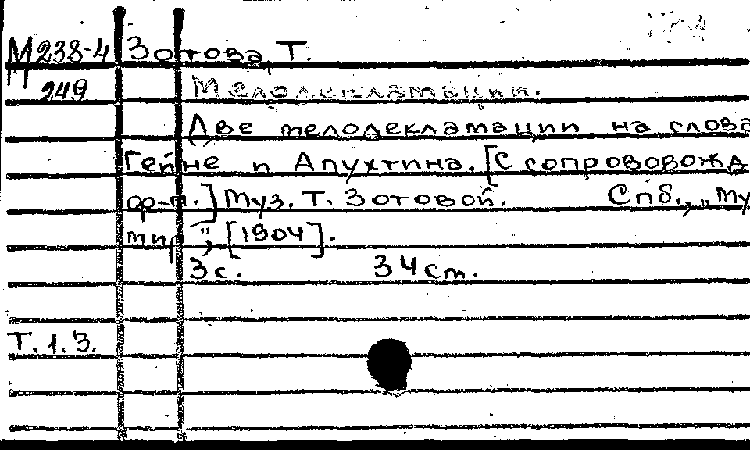 М238-4 Зотова, Т.
249 Мелодекламации.
Две мелодекламации на слова
Гейне и Апухтина. [С сопрововожд
ф-п.] Муз. Т. Зотовой. Спб., „Му
мир", [1904].
3 с. 34 см.
Т.1.3.